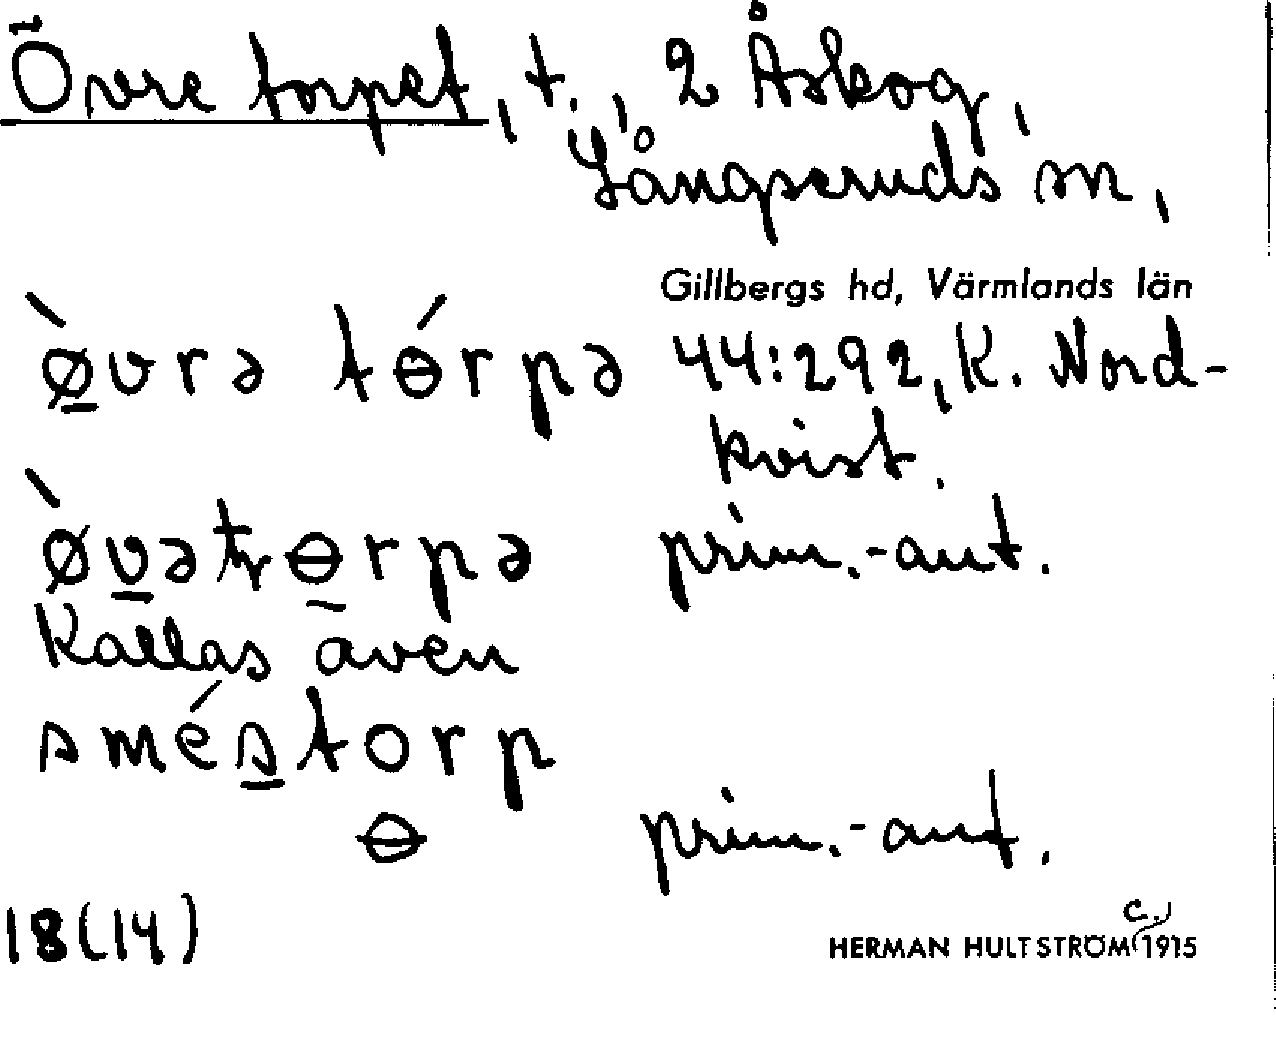 Övre torpet, t., 2 Åskog,
Långseruds sn,
Gillbergs hd, Värmlands län
ø̀vrə tɵ́rpə 44:292, K. Nord-
kvist.
ø̀vətɵrpə prim.-aut.
Kallas även
sméstorp
ɵ prim.-aut.
18(14)
c.
HERMAN HULTSTRÖM, 1915